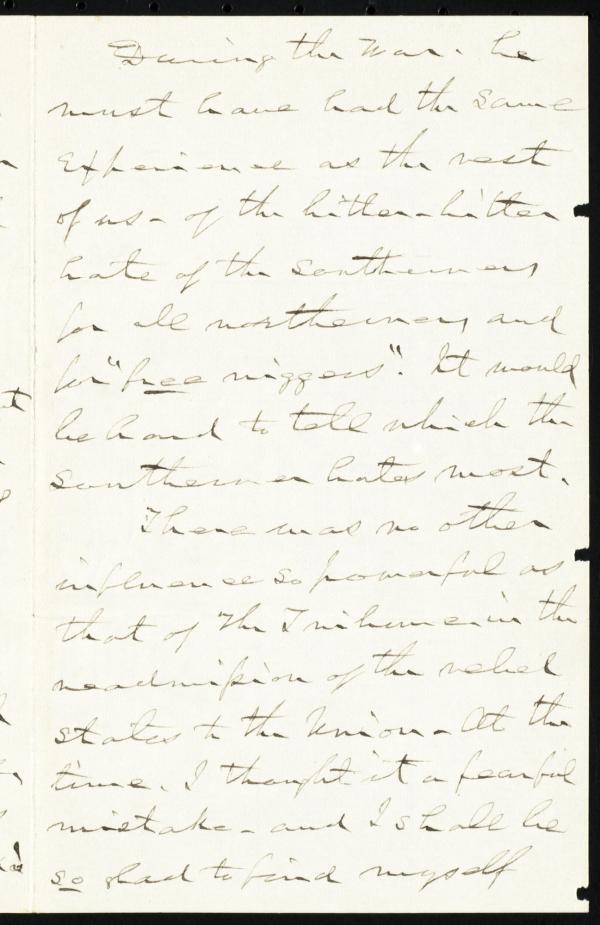 During the War. he
must have had the same
Experience as the rest
of us - of the bitter-bitter
hate of the southerners
for all northerners and
for "free niggers". It would
be hard to tell which the
southerner hates most.
There was no other
influence so powerful as
that of The Tribune in the
readmission of the rebel
states to the Union - At the
time. I thought it a fearful
mistake - and I shall be
so glad to find myself